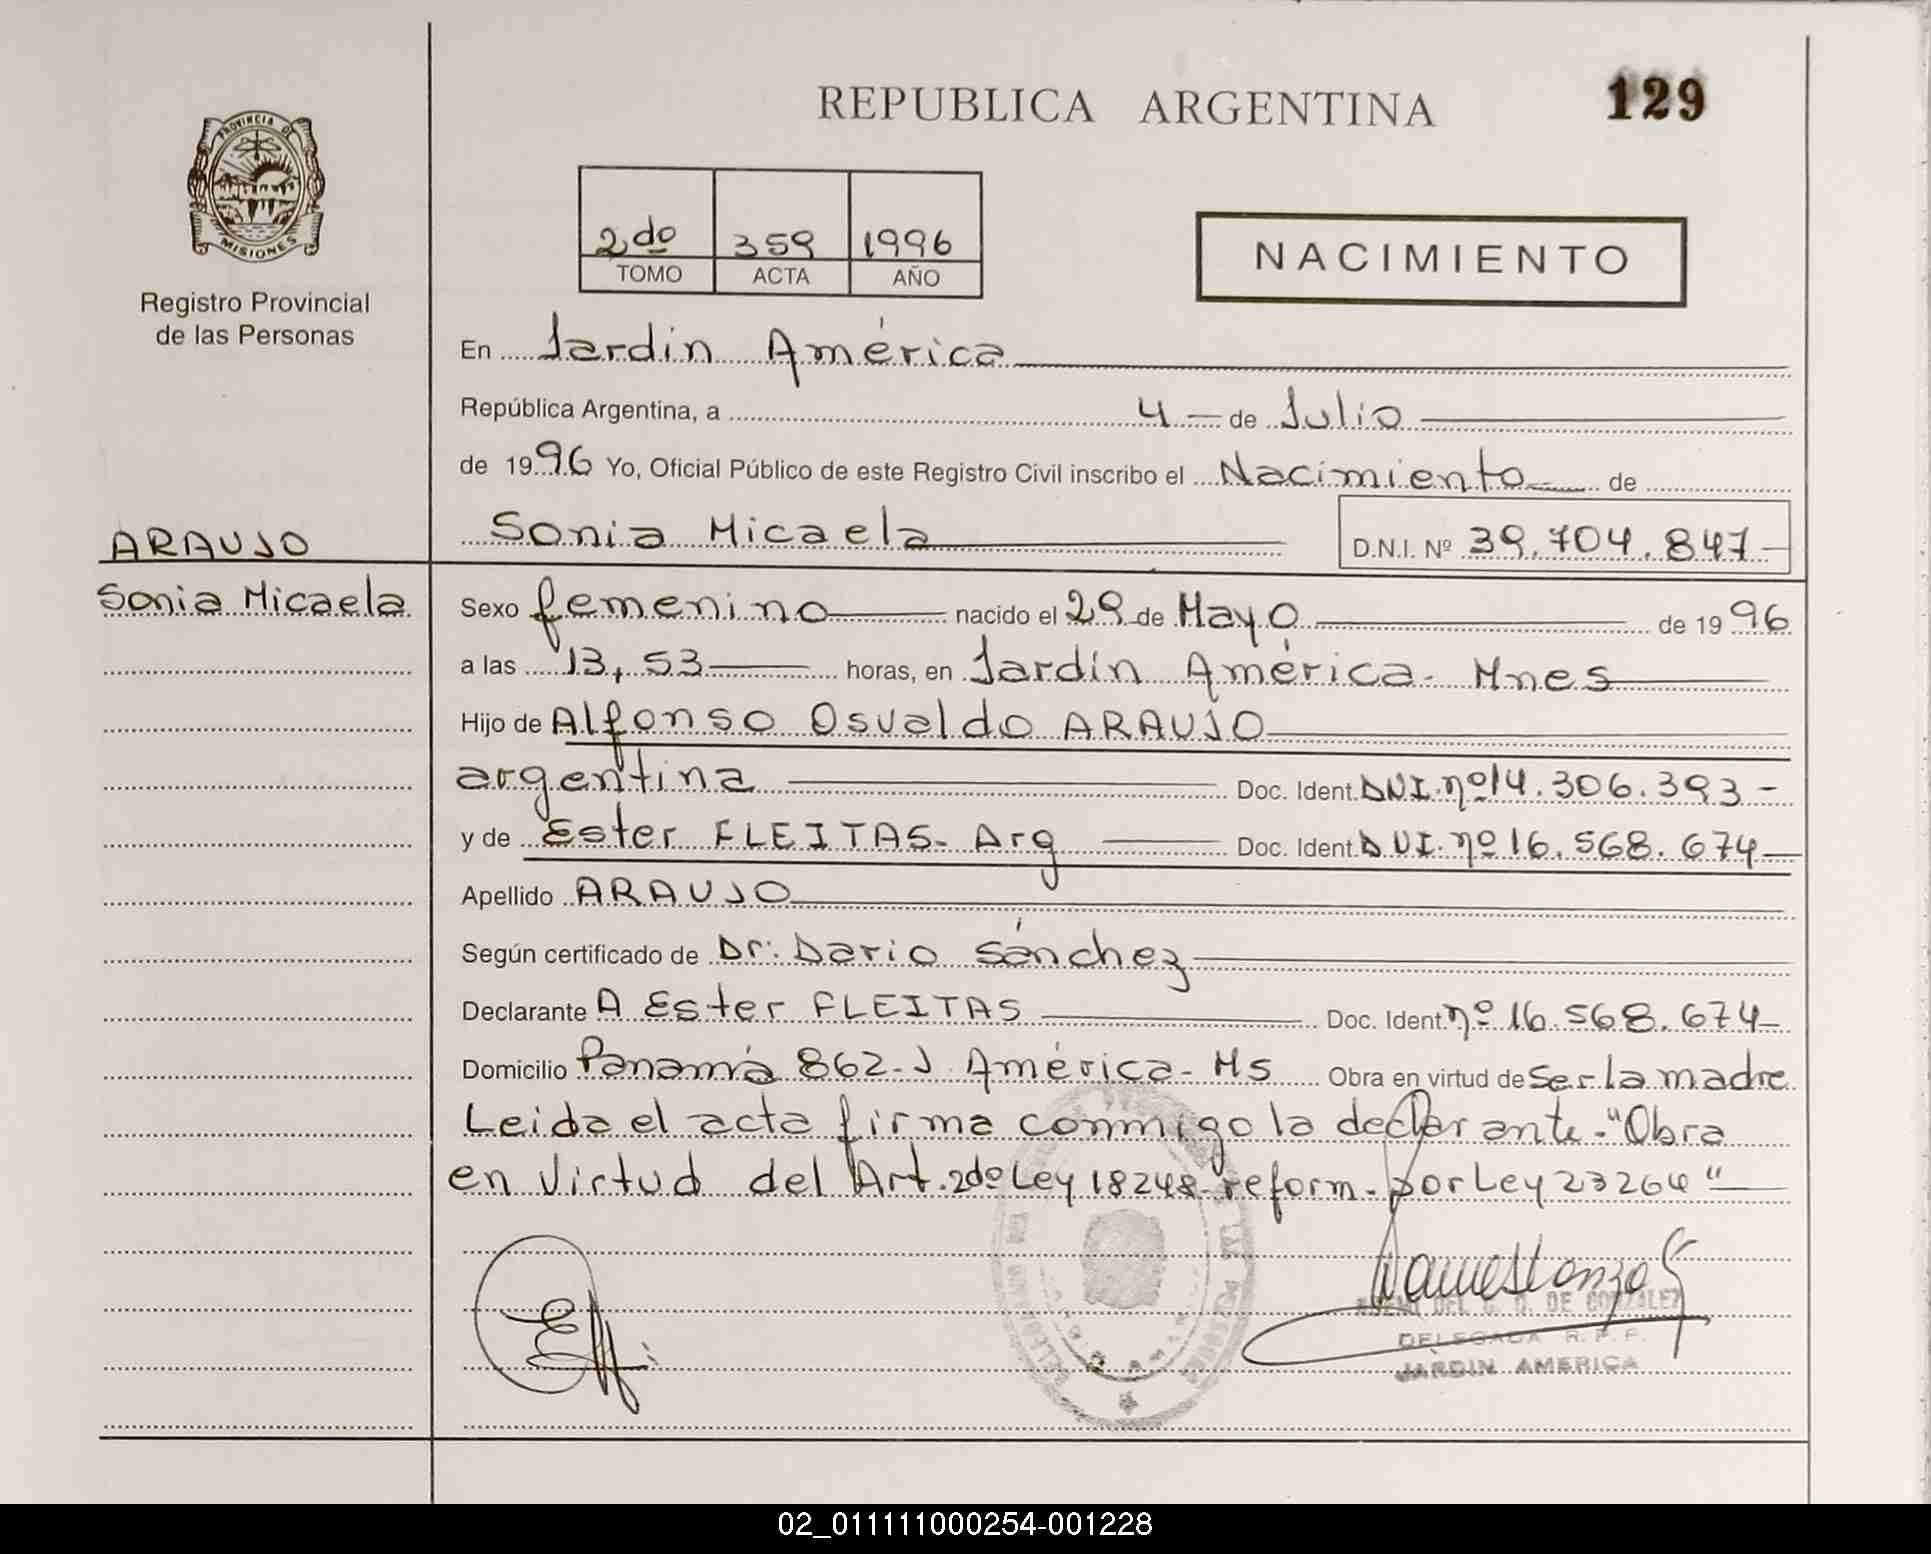 REPUBLICA ARGENTINA
129
PROVINCIA DE
MISIONES
Registro Provincial
de las Personas
2do 359 1996
TOMO ACTA AÑO
NACIMIENTO
En Jardin América
República Argentina, a 4 de Julio
de 1996 Yo, Oficial Público de este Registro Civil inscribo el Nacimiento de
Sonia Micaela D.N.I. Nº 39.704.847
ARAUJO
Sonia Micaela
Sexo femenino nacido el 29 de Mayo de 1996
a las 13,53 horas, en Jardín América - Mnes
Hijo de Alfonso Osvaldo ARAUJO
argentina Doc. Ident. DNI.nº14.306.393-
y de Ester FLEITAS- Arg Doc. Ident. DNI.nº16.568.674
Apellido ARAUJO
Según certificado de Dr: Dario Sánchez
Declarante A Ester FLEITAS Doc. Ident. nº 16.568.674
Domicilio Panamá 862-J. América- Ms Obra en virtud de Ser la madre
Leida el acta firma conmigo la declarante-"Obra
en Virtud del Art.2do Ley 18248 reform-por Ley 23264"
DE GONZALEZ
DELEGADA R. P. P.
JARDIN AMERICA
02_011111000254-001228